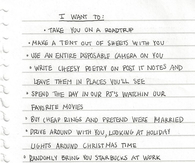 I WANT TO:
• TAKE YOU ON A ROADTRIP
• MAKE A TENT OUT OF SHEETS WITH YOU
• USE AN ENTIRE DISPOSABLE CAMERA ON YOU
• WRITE CHEESY POETRY ON POST IT NOTES AND
LEAVE THEM IN PLACES YOU'LL SEE
• SPEND THE DAY IN OUR PJ'S WATCHIN OUR
FAVORITE MOVIES
• BUY CHEAP RINGS AND PRETEND WERE MARRIED
• DRIVE AROUND WITH YOU, LOOKING AT HOLIDAY
LIGHTS AROUND CHRISTMAS TIME
• RANDOMLY BRING YOU STARBUCKS AT WORK